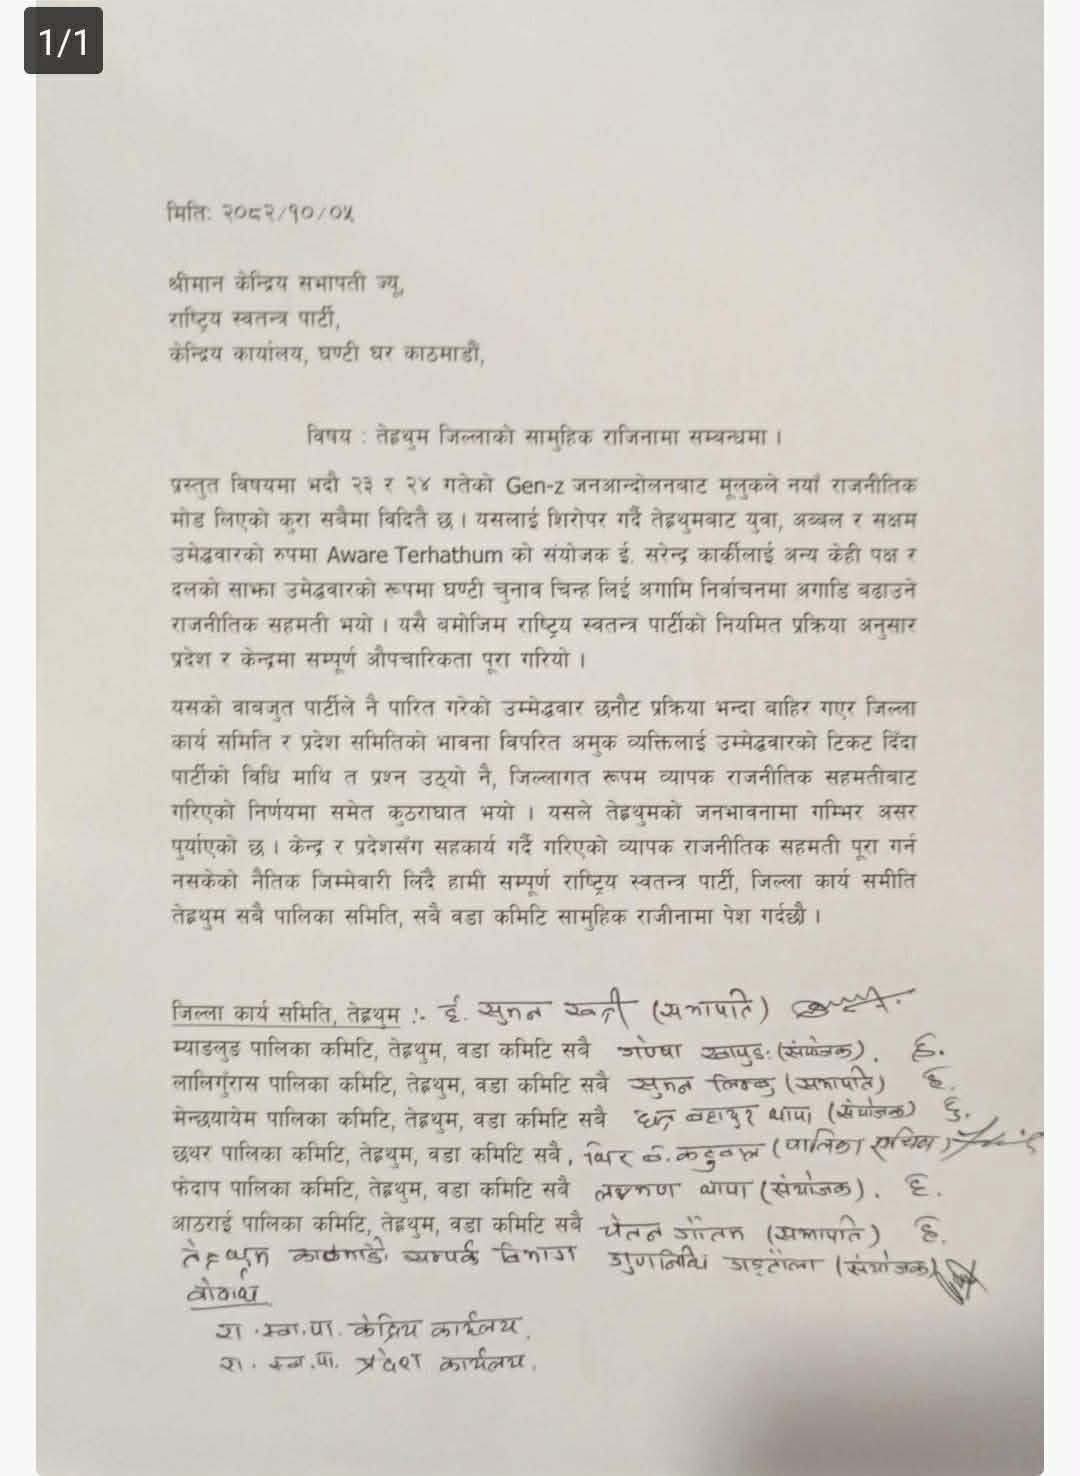 1/1
मितिः २०८२/१०/०५
श्रीमान केन्द्रिय सभापती ज्यू,
राष्ट्रिय स्वतन्त्र पार्टी,
केन्द्रिय कार्यालय, घण्टी घर काठमाडौं,
विषय : तेह्रथुम जिल्लाको सामुहिक राजिनामा सम्बन्धमा ।
प्रस्तुत विषयमा भदौ २३ र २४ गतेको Gen-z जनआन्दोलनबाट मूलुकले नयाँ राजनीतिक
मोड लिएको कुरा सबैमा विदितै छ । यसलाई शिरोपर गर्दै तेह्रथुमबाट युवा, अब्बल र सक्षम
उमेद्धवारको रुपमा Aware Terhathum को संयोजक ई. सरेन्द्र कार्कीलाई अन्य केही पक्ष र
दलको साझा उमेद्धवारको रूपमा घण्टी चुनाव चिन्ह लिई अगामि निर्वाचनमा अगाडि बढाउने
राजनीतिक सहमती भयो । यसै बमोजिम राष्ट्रिय स्वतन्त्र पार्टीको नियमित प्रक्रिया अनुसार
प्रदेश र केन्द्रमा सम्पूर्ण औपचारिकता पूरा गरियो ।
यसको वाबजुत पार्टीले नै पारित गरेको उम्मेद्धवार छनौट प्रक्रिया भन्दा बाहिर गएर जिल्ला
कार्य समिति र प्रदेश समितिको भावना विपरित अमुक व्यक्तिलाई उम्मेद्धवारको टिकट दिँदा
पार्टीको विधि माथि त प्रश्न उठ्यो नै, जिल्लागत रूपम व्यापक राजनीतिक सहमतीबाट
गरिएको निर्णयमा समेत कुठराघात भयो । यसले तेह्रथुमको जनभावनामा गम्भिर असर
पुर्याएको छ । केन्द्र र प्रदेशसँग सहकार्य गर्दै गरिएको व्यापक राजनीतिक सहमती पूरा गर्न
नसकेको नैतिक जिम्मेवारी लिदै हामी सम्पूर्ण राष्ट्रिय स्वतन्त्र पार्टी, जिल्ला कार्य समीति
तेह्रथुम सबै पालिका समिति, सबै वडा कमिटि सामुहिक राजीनामा पेश गर्दछौ ।
जिल्ला कार्य समिति, तेह्रथुम :- ई. सुमन खत्री (सभापति)
म्याडलुड पालिका कमिटि, तेह्रथुम, वडा कमिटि सबै (संयोजक).
लालिगुँरास पालिका कमिटि, तेह्रथुम, वडा कमिटि सबै सुमन लिम्बु (सभापति)
मेन्छयायेम पालिका कमिटि, तेह्रथुम, वडा कमिटि सबै बहादुर थापा (संयोजक)
छथर पालिका कमिटि, तेह्रथुम, वडा कमिटि सबै, (पालिका सचिव)
फेदाप पालिका कमिटि, तेह्रथुम, वडा कमिटि सबै लक्ष्मण थापा (संयोजक).
आठराई पालिका कमिटि, तेह्रथुम, वडा कमिटि सबै चेतन गौतम (सभापति)
तेह्रथुम काठमाडौं सम्पर्क विभाग गुणनिधि (संयोजक)
बोधार्थ
रा.स्व.पा. केन्द्रिय कार्यालय,
रा.स्व.पा. प्रदेश कार्यालय,